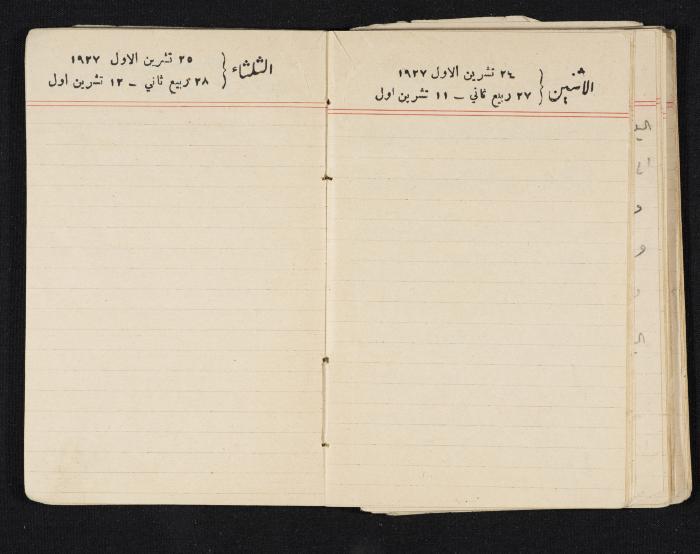 الاثنين
٢٤ تشرين الاول ١٩٢٧
٢٧ ربيع ثاني - ١١ تشرين اول
الثلثاء
٢٥ تشرين الاول ١٩٢٧
٢٨ ربيع ثاني - ١٢ تشرين اول